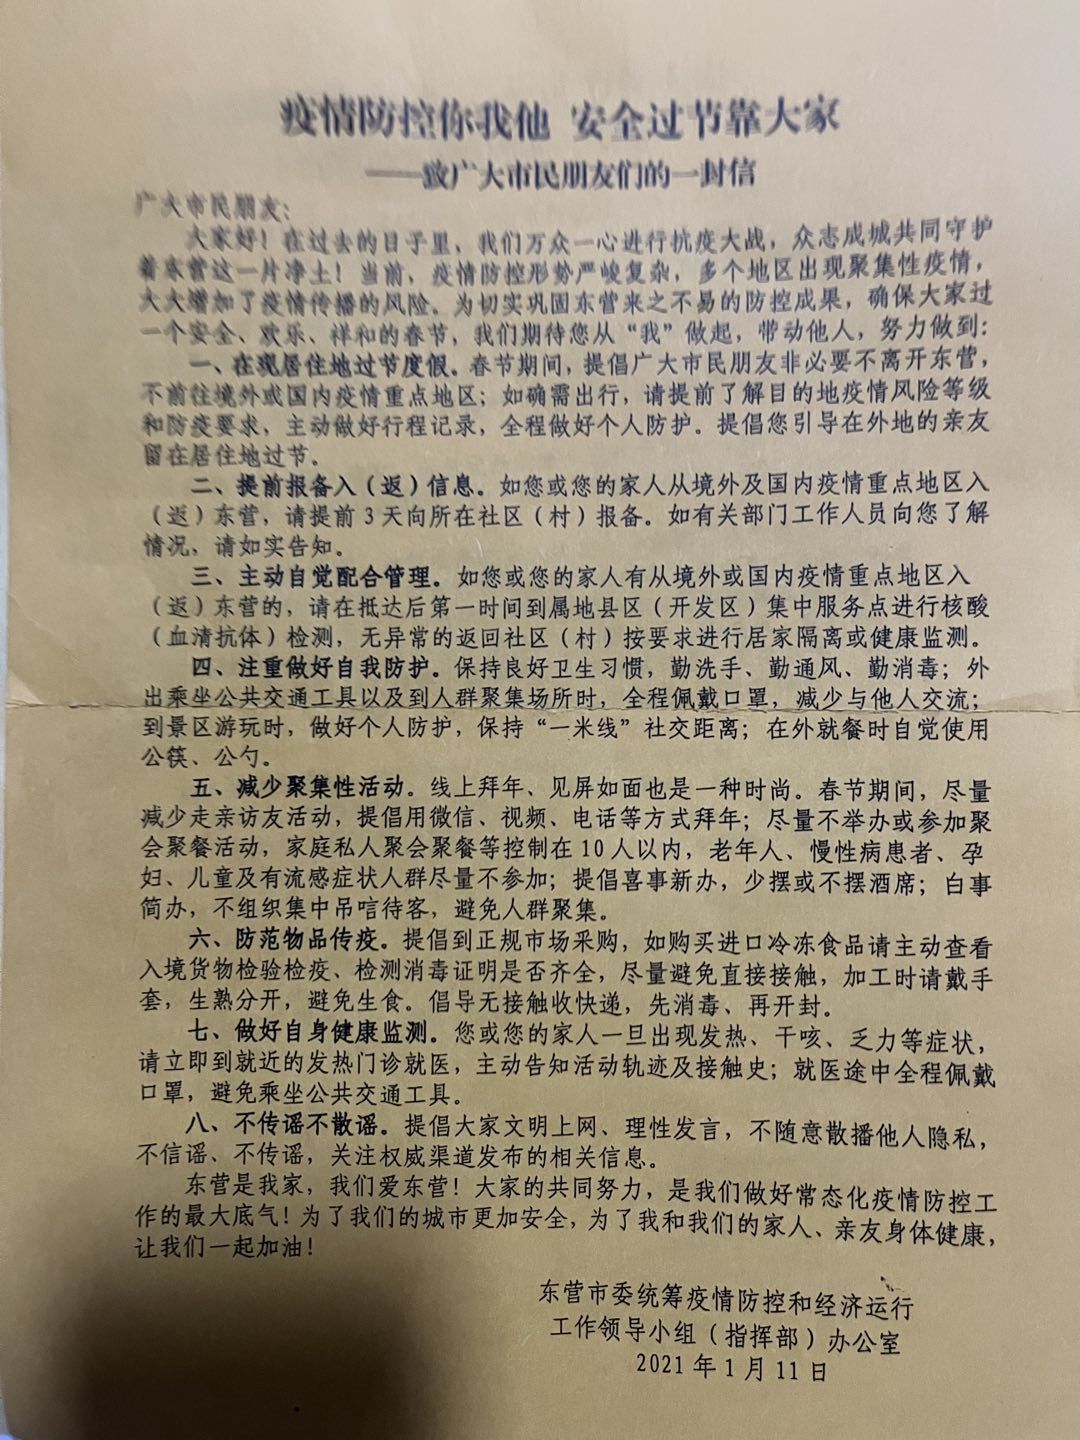 疫情防控你我他 安全过节靠大家
——致广大市民朋友们的一封信
广大市民朋友：
大家好！在过去的日子里，我们万众一心进行抗疫大战，众志成城共同守护
着东营这一片净土！当前，疫情防控形势严峻复杂，多个地区出现聚集性疫情，
大大增加了疫情传播的风险。为切实巩固东营来之不易的防控成果，确保大家过
一个安全、欢乐、祥和的春节，我们期待您从“我”做起，带动他人，努力做到：
一、在现居住地过节度假。春节期间，提倡广大市民朋友非必要不离开东营，
不前往境外或国内疫情重点地区；如确需出行，请提前了解目的地疫情风险等级
和防疫要求，主动做好行程记录，全程做好个人防护。提倡您引导在外地的亲友
留在居住地过节。
二、提前报备入（返）信息。如您或您的家人从境外及国内疫情重点地区入
（返）东营，请提前3天向所在社区（村）报备。如有关部门工作人员向您了解
情况，请如实告知。
三、主动自觉配合管理。如您或您的家人有从境外或国内疫情重点地区入
（返）东营的，请在抵达后第一时间到属地县区（开发区）集中服务点进行核酸
（血清抗体）检测，无异常的返回社区（村）按要求进行居家隔离或健康监测。
四、注重做好自我防护。保持良好卫生习惯，勤洗手、勤通风、勤消毒；外
出乘坐公共交通工具以及到人群聚集场所时，全程佩戴口罩，减少与他人交流；
到景区游玩时，做好个人防护，保持“一米线”社交距离；在外就餐时自觉使用
公筷、公勺。
五、减少聚集性活动。线上拜年、见屏如面也是一种时尚。春节期间，尽量
减少走亲访友活动，提倡用微信、视频、电话等方式拜年；尽量不举办或参加聚
会聚餐活动，家庭私人聚会聚餐等控制在10人以内，老年人、慢性病患者、孕
妇、儿童及有流感症状人群尽量不参加；提倡喜事新办，少摆或不摆酒席；白事
简办，不组织集中吊唁待客，避免人群聚集。
六、防范物品传疫。提倡到正规市场采购，如购买进口冷冻食品请主动查看
入境货物检验检疫、检测消毒证明是否齐全，尽量避免直接接触，加工时请戴手
套，生熟分开，避免生食。倡导无接触收快递，先消毒、再开封。
七、做好自身健康监测。您或您的家人一旦出现发热、干咳、乏力等症状，
请立即到就近的发热门诊就医，主动告知活动轨迹及接触史；就医途中全程佩戴
口罩，避免乘坐公共交通工具。
八、不传谣不散谣。提倡大家文明上网、理性发言，不随意散播他人隐私，
不信谣、不传谣，关注权威渠道发布的相关信息。
东营是我家，我们爱东营！大家的共同努力，是我们做好常态化疫情防控工
作的最大底气！为了我们的城市更加安全，为了我和我们的家人、亲友身体健康，
让我们一起加油！
东营市委统筹疫情防控和经济运行
工作领导小组（指挥部）办公室
2021年1月11日